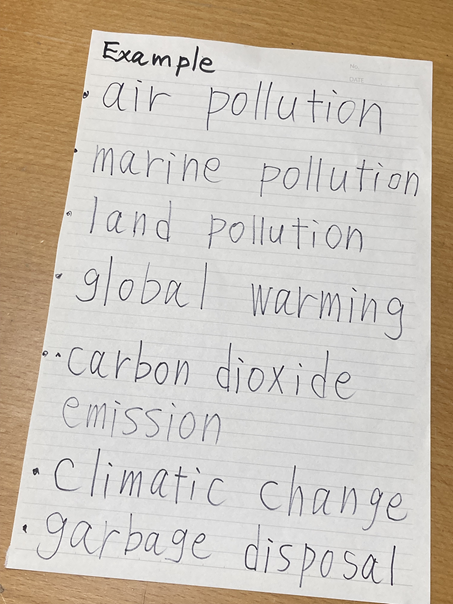 Example
• air pollution
• marine pollution
• land pollution
• global warming
• carbon dioxide
emission
• climatic change
• garbage disposal